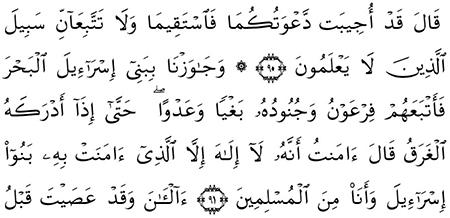 قَالَ قَدْ أُجِيبَت دَّعْوَتُكُمَا فَٱسْتَقِيمَا وَلَا تَتَّبِعَآنِّ سَبِيلَ
ٱلَّذِينَ لَا يَعْلَمُونَ ﴿٩٥﴾ ۞ وَجَٰوَزْنَا بِبَنِىٓ إِسْرَٰٓءِيلَ ٱلْبَحْرَ
فَأَتْبَعَهُمْ فِرْعَوْنُ وَجُنُودُهُۥ بَغْيًا وَعَدْوًا ۖ حَتَّىٰٓ إِذَآ أَدْرَكَهُ
ٱلْغَرَقُ قَالَ ءَامَنتُ أَنَّهُۥ لَآ إِلَٰهَ إِلَّا ٱلَّذِىٓ ءَامَنَتْ بِهِۦ بَنُوٓا۟
إِسْرَٰٓءِيلَ وَأَنَا۠ مِنَ ٱلْمُسْلِمِينَ ﴿٩٦﴾ ءَآلْـَٰٔنَ وَقَدْ عَصَيْتَ قَبْلُ